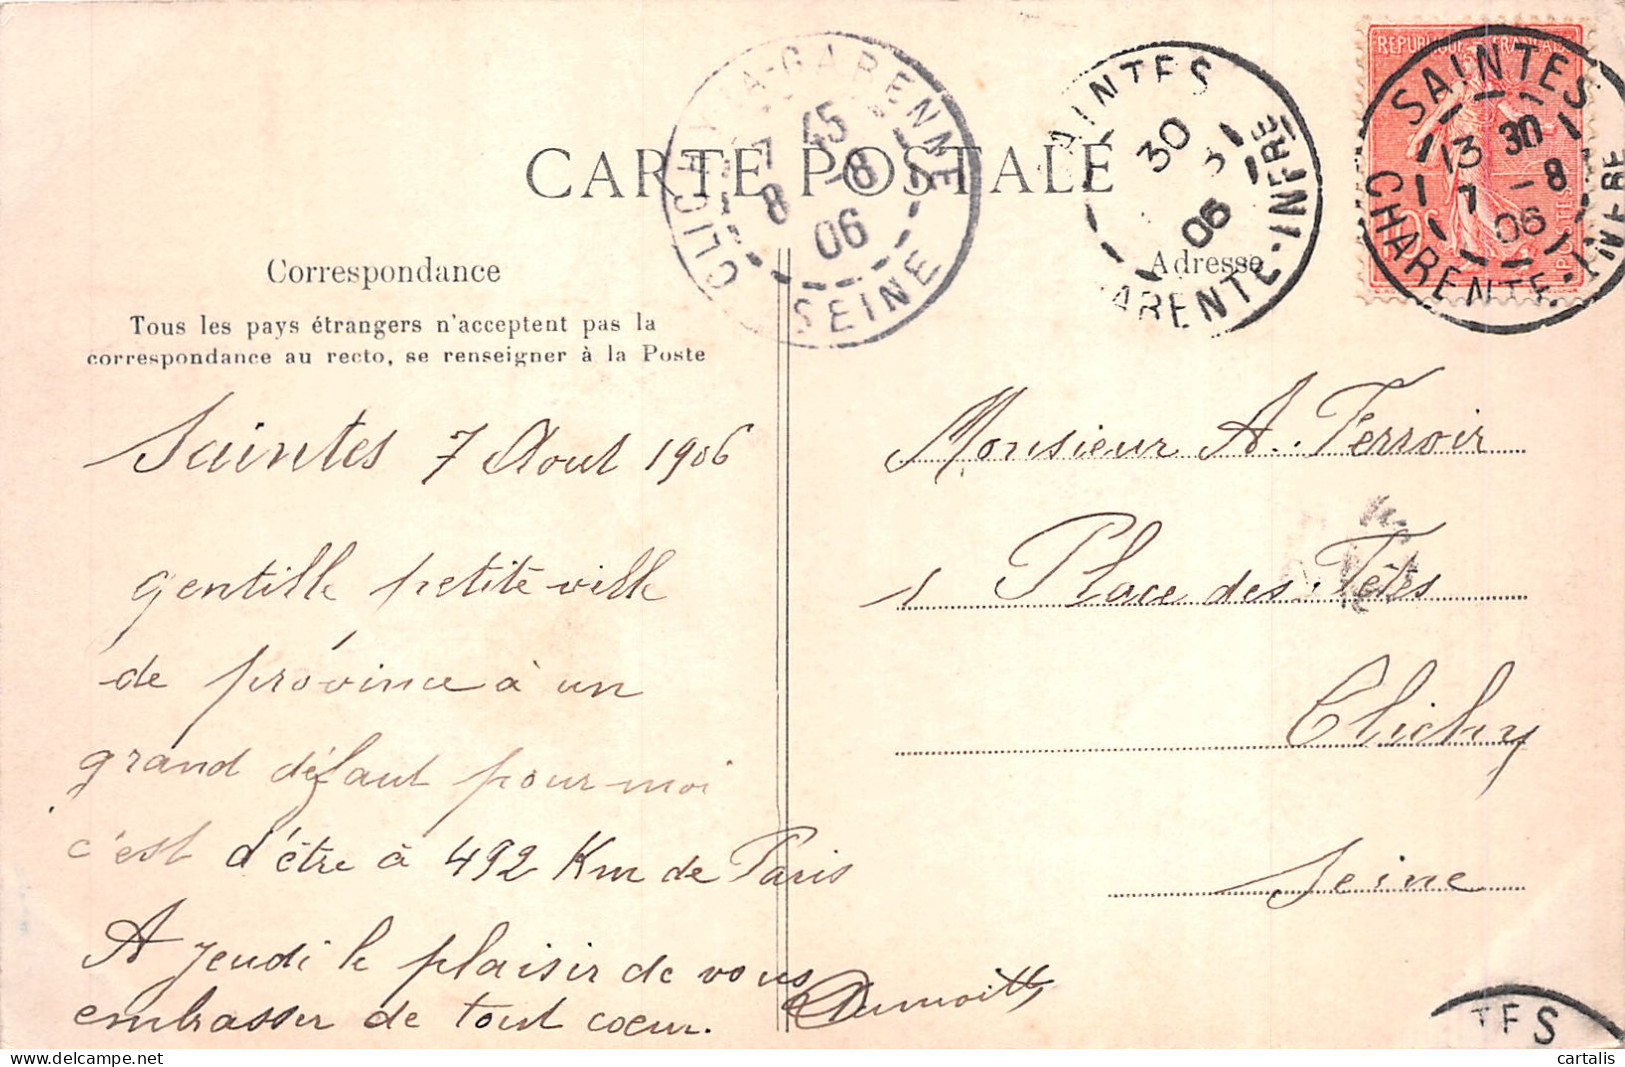 CARTE POSTALE
Correspondance
Tous les pays étrangers n'acceptent pas la
correspondance au recto, se renseigner à la Poste
Saintes 7 Aout 1906
gentille petite ville
de province à un
grand défaut pour moi
c'est d'être à 492 Km de Paris
A jeudi le plaisir de vous
embrasser de tout cœur.
CLICHY-LA-GARENNE
7 45
8 -8
06
SEINE
AINTES
30
06
ARENTE-INFRE
Adresse
REPUBLIQUE FRANÇAISE
POSTES
SAINTES
13 30
7 -8
06
CHARENTE-INFRE
Monsieur A. Ferroir
1 Place des Fêtes
Clichy
Seine
TES
cartalis